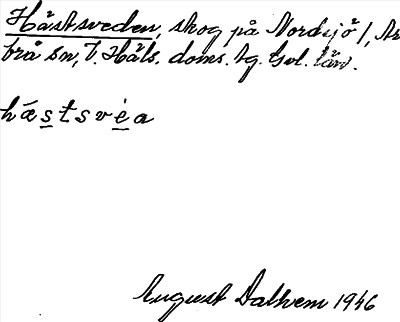 Hästsveden, skog på Nordsjö 1, Ar
brå sn, V. Häls. doms. tg. Gvl. län.
hästsvėa
August Dalhem 1946